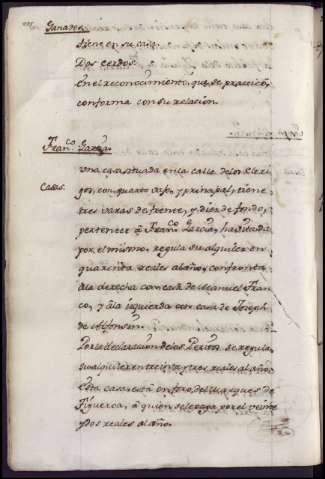 Ganados.
tiene en su casa.
Dos cerdos.
En el reconocimiento, que se practicó,
conforma con su relasion.
Fran.co Garzia.
Casas.
Una casa situada en la calle de los Cleri-
gos, con quarto vajo, y prinzipal, tiene
tres varas de frente, y diez de fondo,
pertenece a Fran.co Garzia, havitada
por el mismo, regula su alquiler en
quarenta reales al año, confronta
a la derecha con casa de Manuel Fran-
co, y a la izquierda con casa de Joseph
de
Por la declarazion de los Peritos se regula,
su alquiler en treinta y tres reales al año
Esta casa está en foro, del Marques de
Figueroa, a quien se le paga por el veinte
y dos reales al año.